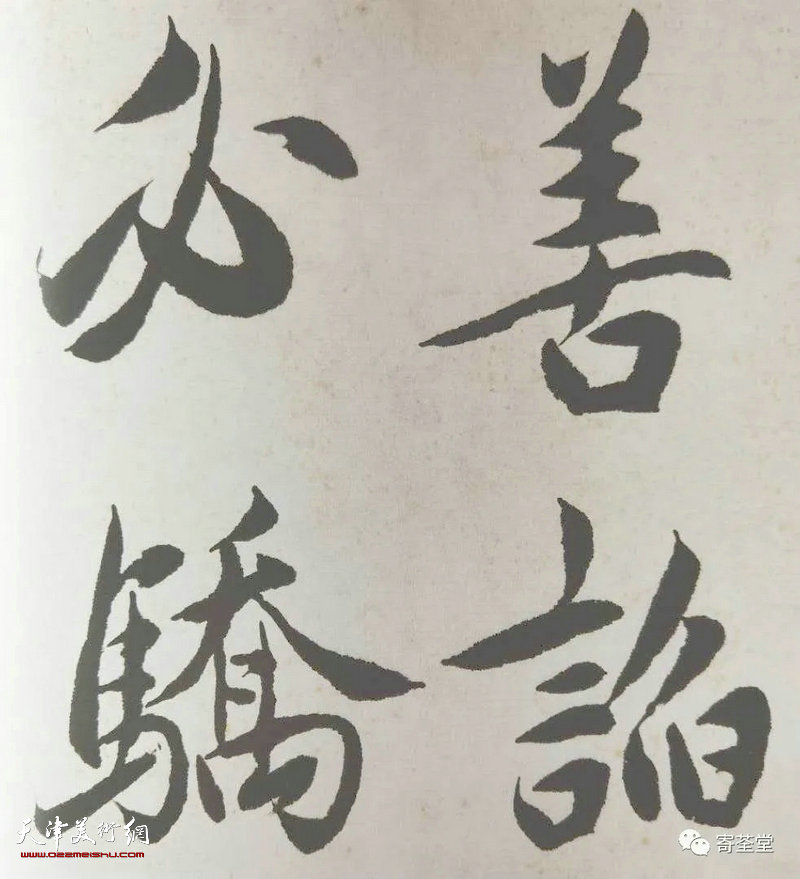 善諂
必驕
天津美術網
www.022meishu.com
寄荃堂